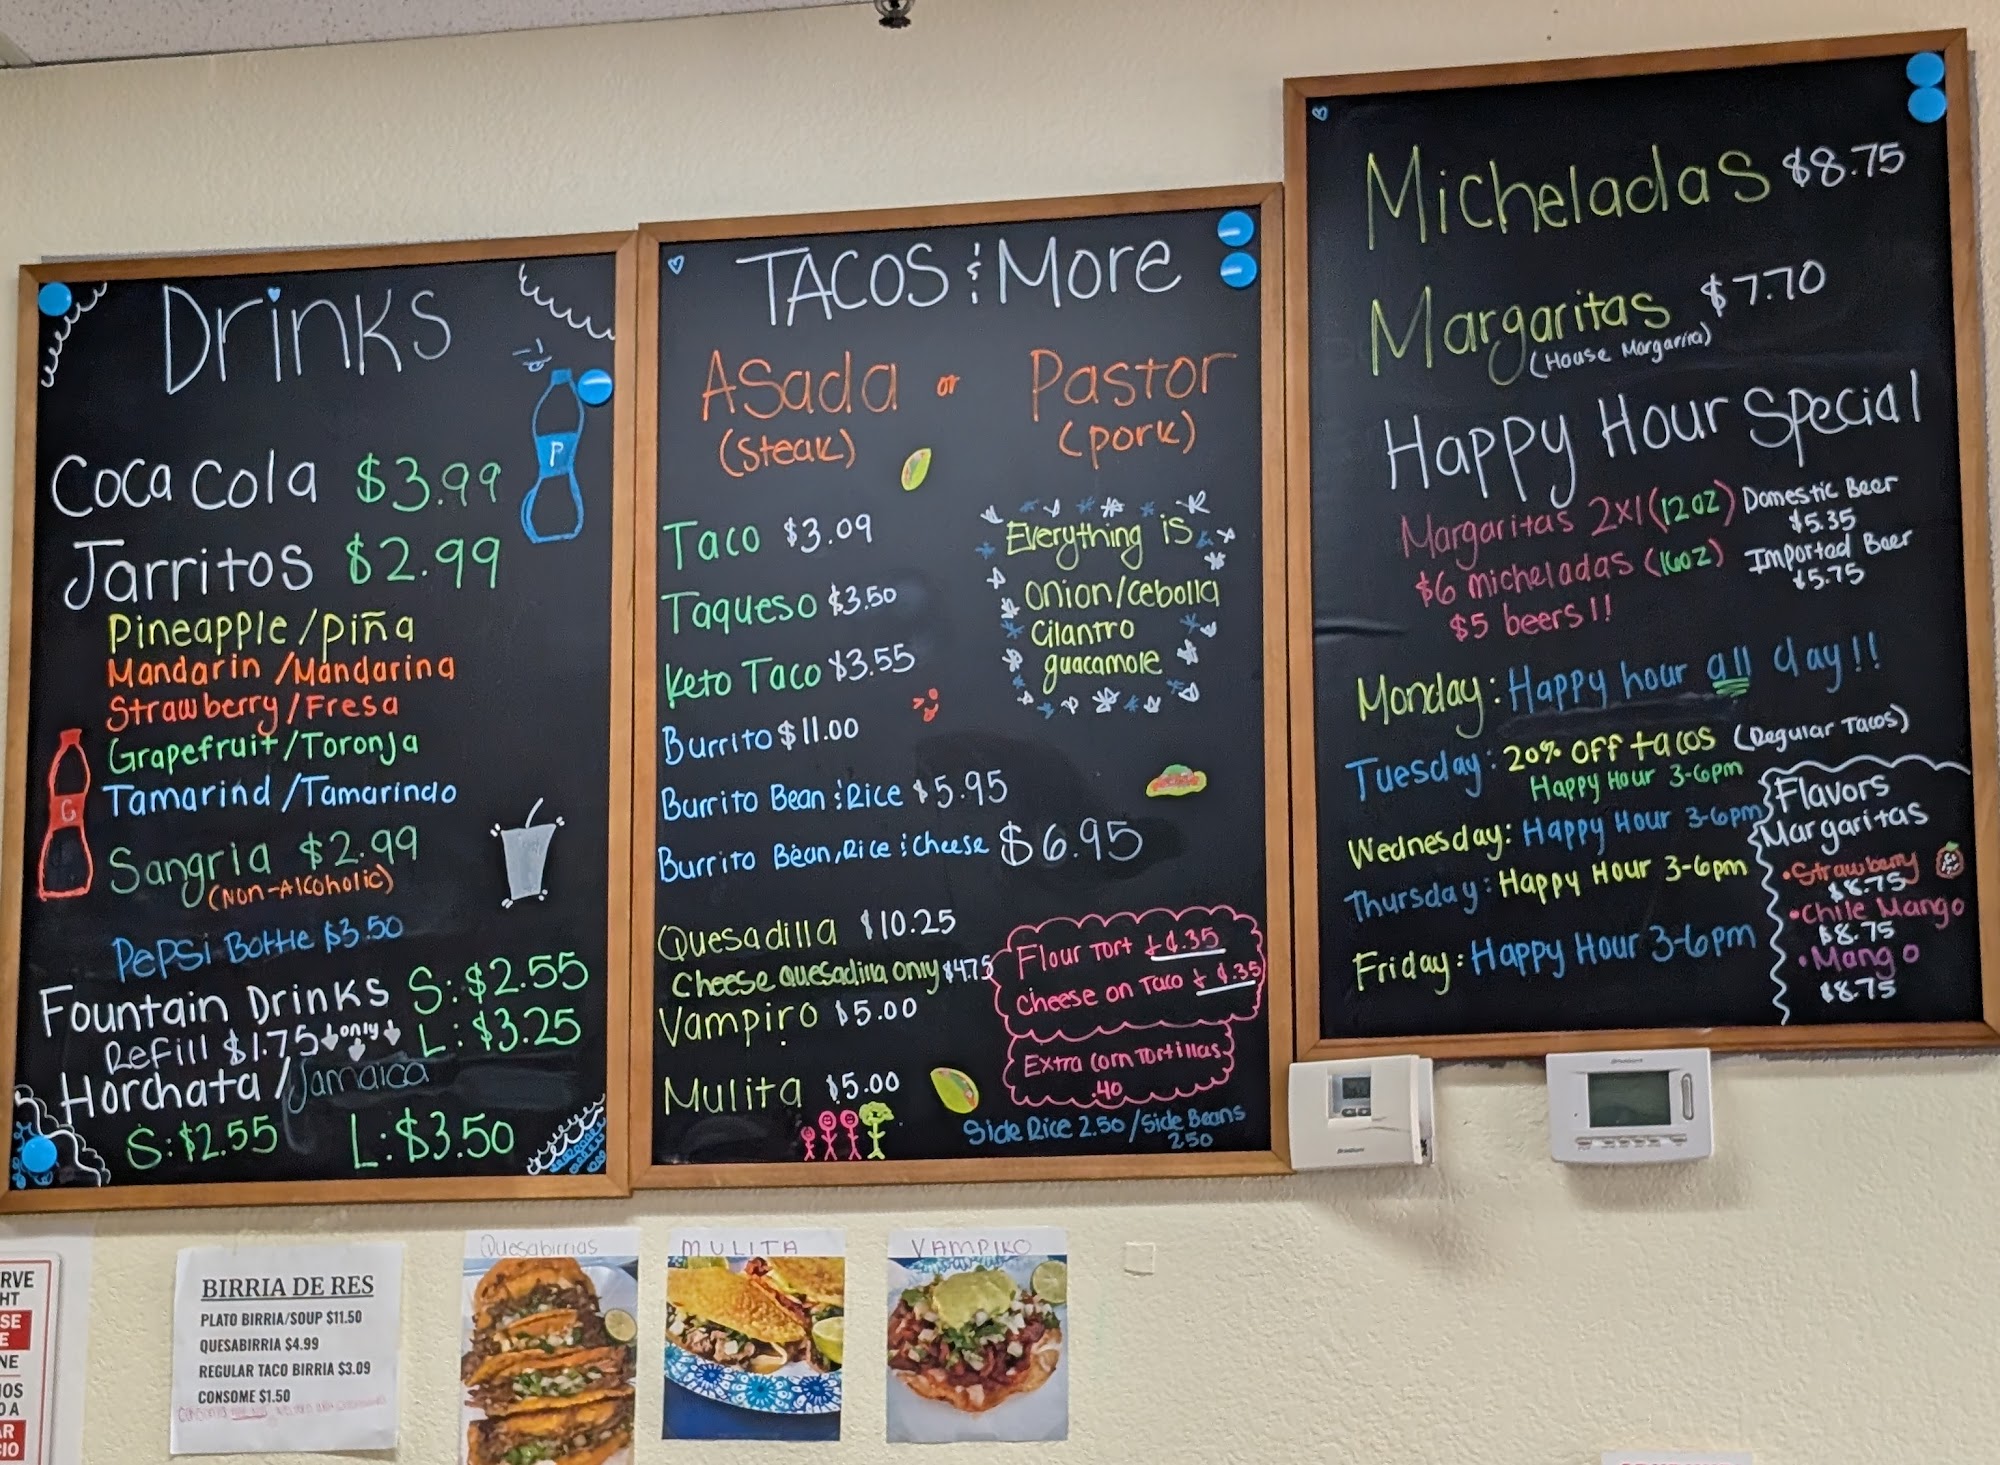 Drinks
Coca Cola $3.99
P
Jarritos $2.99
Pineapple/piña
Mandarin/Mandarina
Strawberry/Fresa
Grapefruit/Toronja
Tamarind/Tamarindo
C
Sangria $2.99
(Non-Alcoholic)
Pepsi Bottle $3.50
Fountain Drinks S: $2.55
Refill $1.75 only L: $3.25
Horchata/Jamaica
S: $2.55 L: $3.50
TACOS & More
Asada or Pastor
(steak) (pork)
Taco $3.09
Taqueso $3.50
Keto Taco $3.55
Burrito $11.00
Burrito Bean & Rice $5.95
Burrito Bean, Rice & Cheese $6.95
Quesadilla $10.25
Cheese quesadilla only $4.75
Vampiro $5.00
Mulita $5.00
Everything is
onion/cebolla
cilantro
guacamole
Flour Tort + ¢.35
cheese on Taco + ¢.35
Extra corn tortillas
.40
Side Rice 2.50/Side Beans
2.50
Micheladas $8.75
Margaritas $7.70
(House Margarita)
Happy Hour Special
Margaritas 2x1 (12oz)
$6 micheladas (16oz)
$5 beers!!
Domestic Beer
$5.35
Imported Beer
$5.75
Monday: Happy hour all day!!
Tuesday: 20% off tacos (Regular Tacos)
Happy Hour 3-6pm
Wednesday: Happy Hour 3-6pm
Thursday: Happy Hour 3-6pm
Friday: Happy Hour 3-6pm
Flavors
Margaritas
•Strawberry
$8.75
•Chile Mango
$8.75
•Mango
$8.75
BIRRIA DE RES
PLATO BIRRIA/SOUP $11.50
QUESABIRRIA $4.99
REGULAR TACO BIRRIA $3.09
CONSOME $1.50
Quesabirrias
MULITA
VAMPIRO